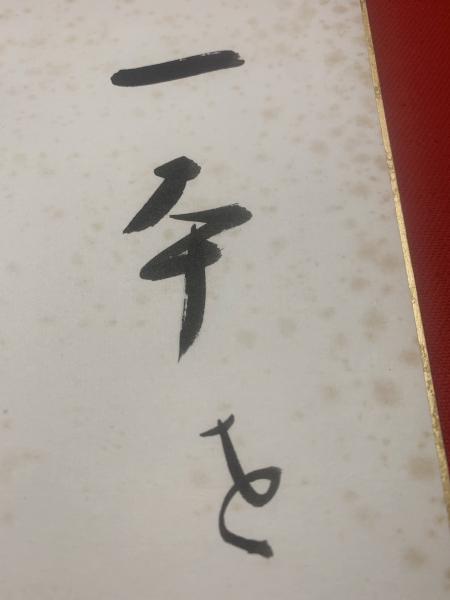 一年を